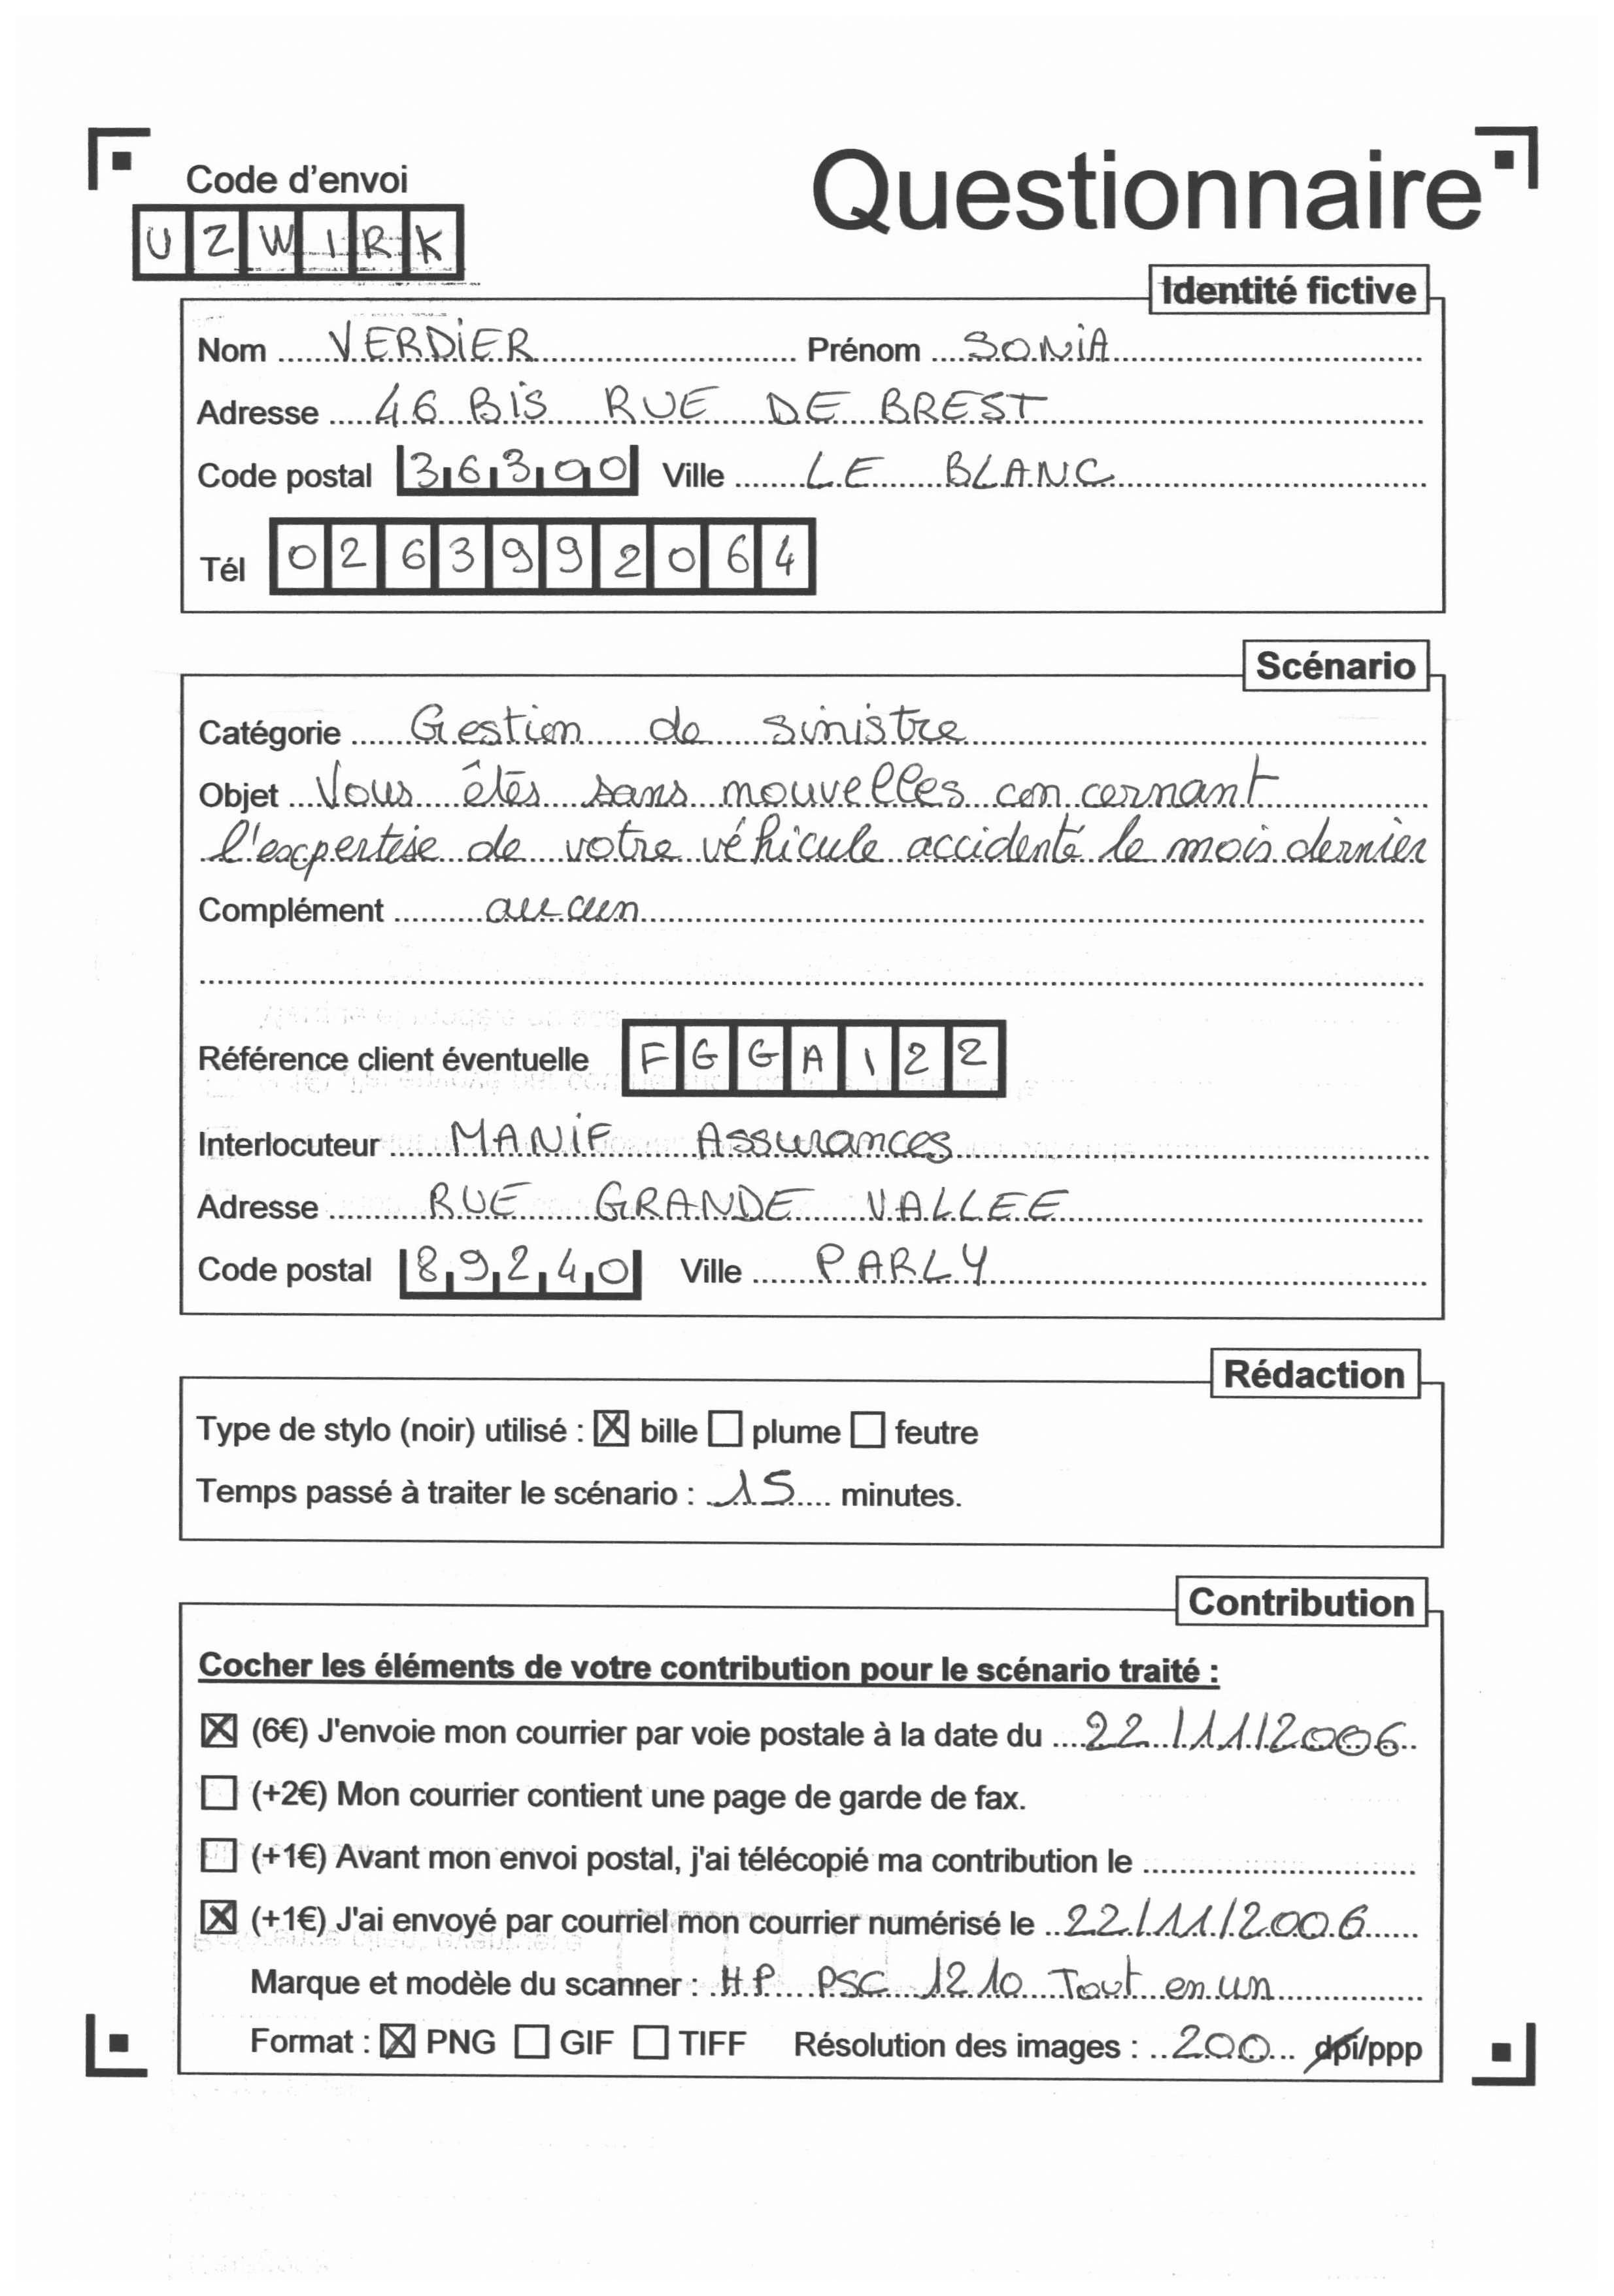 Code d'envoi
Questionnaire
UZWIRK
Identité fictive
Nom VERDIER Prénom SONIA
Adresse 46 BIS RUE DE BREST
Code postal 36300 Ville LE BLANC
Tél 0263992064
Scénario
Catégorie Gestion de sinistre
Objet Vous êtes sans nouvelles concernant
l'expertise de votre véhicule accidenté le mois dernier
Complément aucun
Référence client éventuelle FGGA122
Interlocuteur MANIF Assurances
Adresse RUE GRANDE VALLEE
Code postal 89240 Ville PARLY
Rédaction
Type de stylo (noir) utilisé : ☒ bille ☐ plume ☐ feutre
Temps passé à traiter le scénario : 15 minutes.
Contribution
Cocher les éléments de votre contribution pour le scénario traité :
☒ (6€) J'envoie mon courrier par voie postale à la date du 22/11/2006
☐ (+2€) Mon courrier contient une page de garde de fax.
☐ (+1€) Avant mon envoi postal, j'ai télécopié ma contribution le
☒ (+1€) J'ai envoyé par courriel mon courrier numérisé le 22/11/2006
Marque et modèle du scanner : HP PSC 1210 Tout en un
Format : ☒ PNG ☐ GIF ☐ TIFF Résolution des images : 200 dpi/ppp